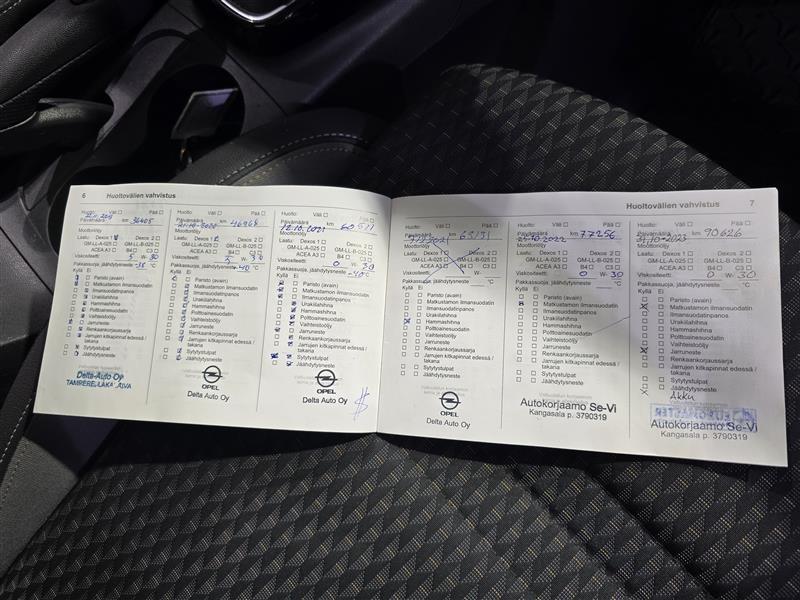 6 Huoltovälien vahvistus
Huolto: Väli ☐ Pää ☐
Päivämäärä km 36405
Moottoriöljy
Laatu: Dexos 1 Dexos 2 ☐
GM-LL-A-025 ☐ GM-LL-B-025 ☐
ACEA A3 ☐ B4 ☐ C3 ☐
Viskositeetti: 5 W- 30
Pakkassuoja, jäähdytysneste °C
Kyllä Ei
Paristo (avain)
Matkustamon ilmansuodatin
Ilmansuodatinpanos
Urakilahihna
Hammashihna
Polttoainesuodatin
Vaihteistoöljy
Jarruneste
Renkaankorjaussarja
Jarrujen kitkapinnat edessä /
takana
Sytytystulpat
Jäähdytysneste
Delta-Auto Oy
Huolto: Väli ☐ Pää ☐
Päivämäärä km 46968
21.10.2020
Moottoriöljy
Laatu: Dexos 1 Dexos 2 ☐
GM-LL-A-025 ☐ GM-LL-B-025 ☐
ACEA A3 ☐ B4 ☐ C3 ☐
Viskositeetti: W- 30
Pakkassuoja, jäähdytysneste -40 °C
Kyllä Ei
Paristo (avain)
Matkustamon ilmansuodatin
Ilmansuodatinpanos
Urakilahihna
Hammashihna
Polttoainesuodatin
Vaihteistoöljy
Jarruneste
Renkaankorjaussarja
Jarrujen kitkapinnat edessä /
takana
Sytytystulpat
Jäähdytysneste
OPEL
Delta Auto Oy
Huolto: Väli ☐ Pää ☐
Päivämäärä km 60511
12.10.2021
Moottoriöljy
Laatu: Dexos 1 Dexos 2 ☐
GM-LL-A-025 ☐ GM-LL-B-025 ☐
ACEA A3 ☐ B4 ☐ C3 ☐
Viskositeetti: 0 W- 30
Pakkassuoja, jäähdytysneste -40 °C
Kyllä Ei
Paristo (avain)
Matkustamon ilmansuodatin
Ilmansuodatinpanos
Urakilahihna
Hammashihna
Polttoainesuodatin
Vaihteistoöljy
Jarruneste
Renkaankorjaussarja
Jarrujen kitkapinnat edessä /
takana
Sytytystulpat
Jäähdytysneste
OPEL
Delta Auto Oy
Huoltovälien vahvistus 7
Huolto: Väli ☐ Pää ☐
Päivämäärä km 65131
Moottoriöljy
Laatu: Dexos 1 ☐ Dexos 2 ☐
GM-LL-A-025 ☐ GM-LL-B-025 ☐
ACEA A3 ☐ B4 ☐ C3 ☐
Viskositeetti: W-
Pakkassuoja, jäähdytysneste °C
Kyllä Ei
Paristo (avain)
Matkustamon ilmansuodatin
Ilmansuodatinpanos
Urakilahihna
Hammashihna
Polttoainesuodatin
Vaihteistoöljy
Jarruneste
Renkaankorjaussarja
Jarrujen kitkapinnat edessä /
takana
Sytytystulpat
Jäähdytysneste
OPEL
Delta Auto Oy
Huolto: Väli ☐ Pää ☐
Päivämäärä km 77256
25.10.2022
Moottoriöljy
Laatu: Dexos 1 ☐ Dexos 2 ☐
GM-LL-A-025 ☐ GM-LL-B-025 ☐
ACEA A3 ☐ B4 ☐ C3 ☐
Viskositeetti: 0 W- 30
Pakkassuoja, jäähdytysneste °C
Kyllä Ei
Paristo (avain)
Matkustamon ilmansuodatin
Ilmansuodatinpanos
Urakilahihna
Hammashihna
Polttoainesuodatin
Vaihteistoöljy
Jarruneste
Renkaankorjaussarja
Jarrujen kitkapinnat edessä /
takana
Sytytystulpat
Jäähdytysneste
Autokorjaamo Se-Vi
Kangasala p. 3790319
Huolto: Väli ☐ Pää ☐
Päivämäärä km 90626
31.10-2023
Moottoriöljy
Laatu: Dexos 1 ☐ Dexos 2 ☐
GM-LL-A-025 ☐ GM-LL-B-025 ☐
ACEA A3 ☐ B4 ☐ C3 ☐
Viskositeetti: 0 W- 30
Pakkassuoja, jäähdytysneste °C
Kyllä Ei
Paristo (avain)
Matkustamon ilmansuodatin
Ilmansuodatinpanos
Urakilahihna
Hammashihna
Polttoainesuodatin
Vaihteistoöljy
Jarruneste
Renkaankorjaussarja
Jarrujen kitkapinnat edessä /
takana
Sytytystulpat
Jäähdytysneste
Akku
Autokorjaamo Se-Vi
Kangasala p. 3790319